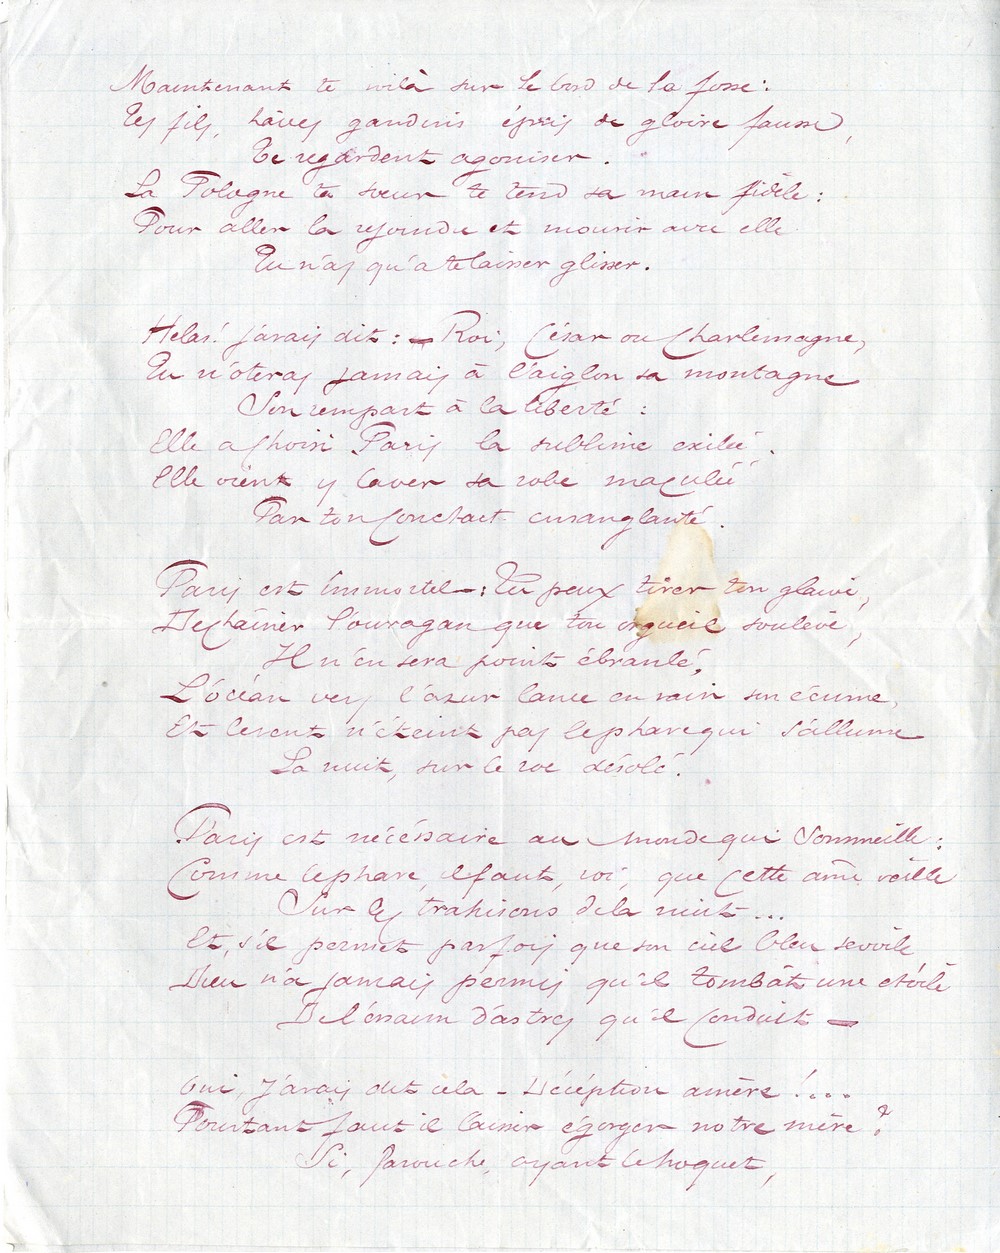 Maintenant te voilà sur le bord de la fosse :
Tes fils, hâves gandins épris de gloire fausse,
Te regardent agoniser.
La Pologne ta sœur te tend sa main fidèle :
Pour aller la rejoindre et mourir avec elle
Tu n'as qu'à te laisser glisser.

Hélas! j'avais dit : — Roi, César ou Charlemagne,
Tu n'ôteras jamais à l'aiglon sa montagne
Son rempart à la liberté :
Elle a choisi Paris la sublime exilée.
Elle vient y laver sa robe maculée
Par ton contact ensanglanté.

Paris est immortel — : Tu peux tirer ton glaive,
Déchaîner l'ouragan que ton orgueil soulève,
Il n'en sera point ébranlé,
L'océan vers l'azur lance en vain son écume,
Et le vent n'éteint pas le phare qui s'allume
La nuit, sur le roc désolé.

Paris est nécéssaire au monde qui sommeille :
Comme le phare, il faut, roi, que cette âme veille
Sur les trahisons de la nuit...
Et, s'il permet parfois que son ciel bleu se voile
Dieu n'a jamais permis qu'il tombât une étoile
De l'éssaim d'astres qu'il conduit —

Oui, j'avais dit cela — Décéption amère !...
Pourtant faut il laisser égorger notre mère ?
Si, farouche, ayant le hoquet,